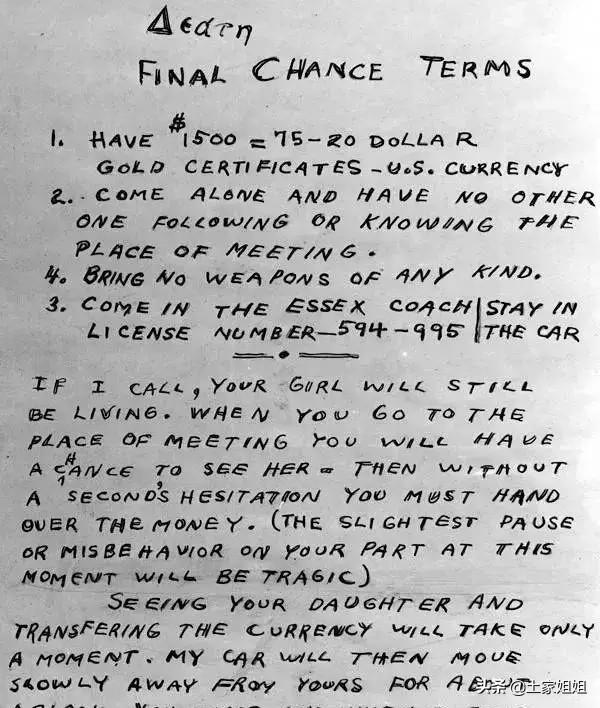 Δεατη
FINAL CHANCE TERMS
1. HAVE $1500 = 75-20 DOLLAR
GOLD CERTIFICATES - U.S. CURRENCY
2. COME ALONE AND HAVE NO OTHER
ONE FOLLOWING OR KNOWING THE
PLACE OF MEETING.
4. BRING NO WEAPONS OF ANY KIND.
3. COME IN THE ESSEX COACH | STAY IN
LICENSE NUMBER - 594-995 | THE CAR
IF I CALL, YOUR GIRL WILL STILL
BE LIVING. WHEN YOU GO TO THE
PLACE OF MEETING YOU WILL HAVE
A CHANCE TO SEE HER - THEN WITHOUT
A SECOND'S HESITATION YOU MUST HAND
OVER THE MONEY. (THE SLIGHTEST PAUSE
OR MISBEHAVIOR ON YOUR PART AT THIS
MOMENT WILL BE TRAGIC)
SEEING YOUR DAUGHTER AND
TRANSFERING THE CURRENCY WILL TAKE ONLY
A MOMENT. MY CAR WILL THEN MOVE
SLOWLY AWAY FROM YOURS FOR ABOUT
头条 @土家姐姐